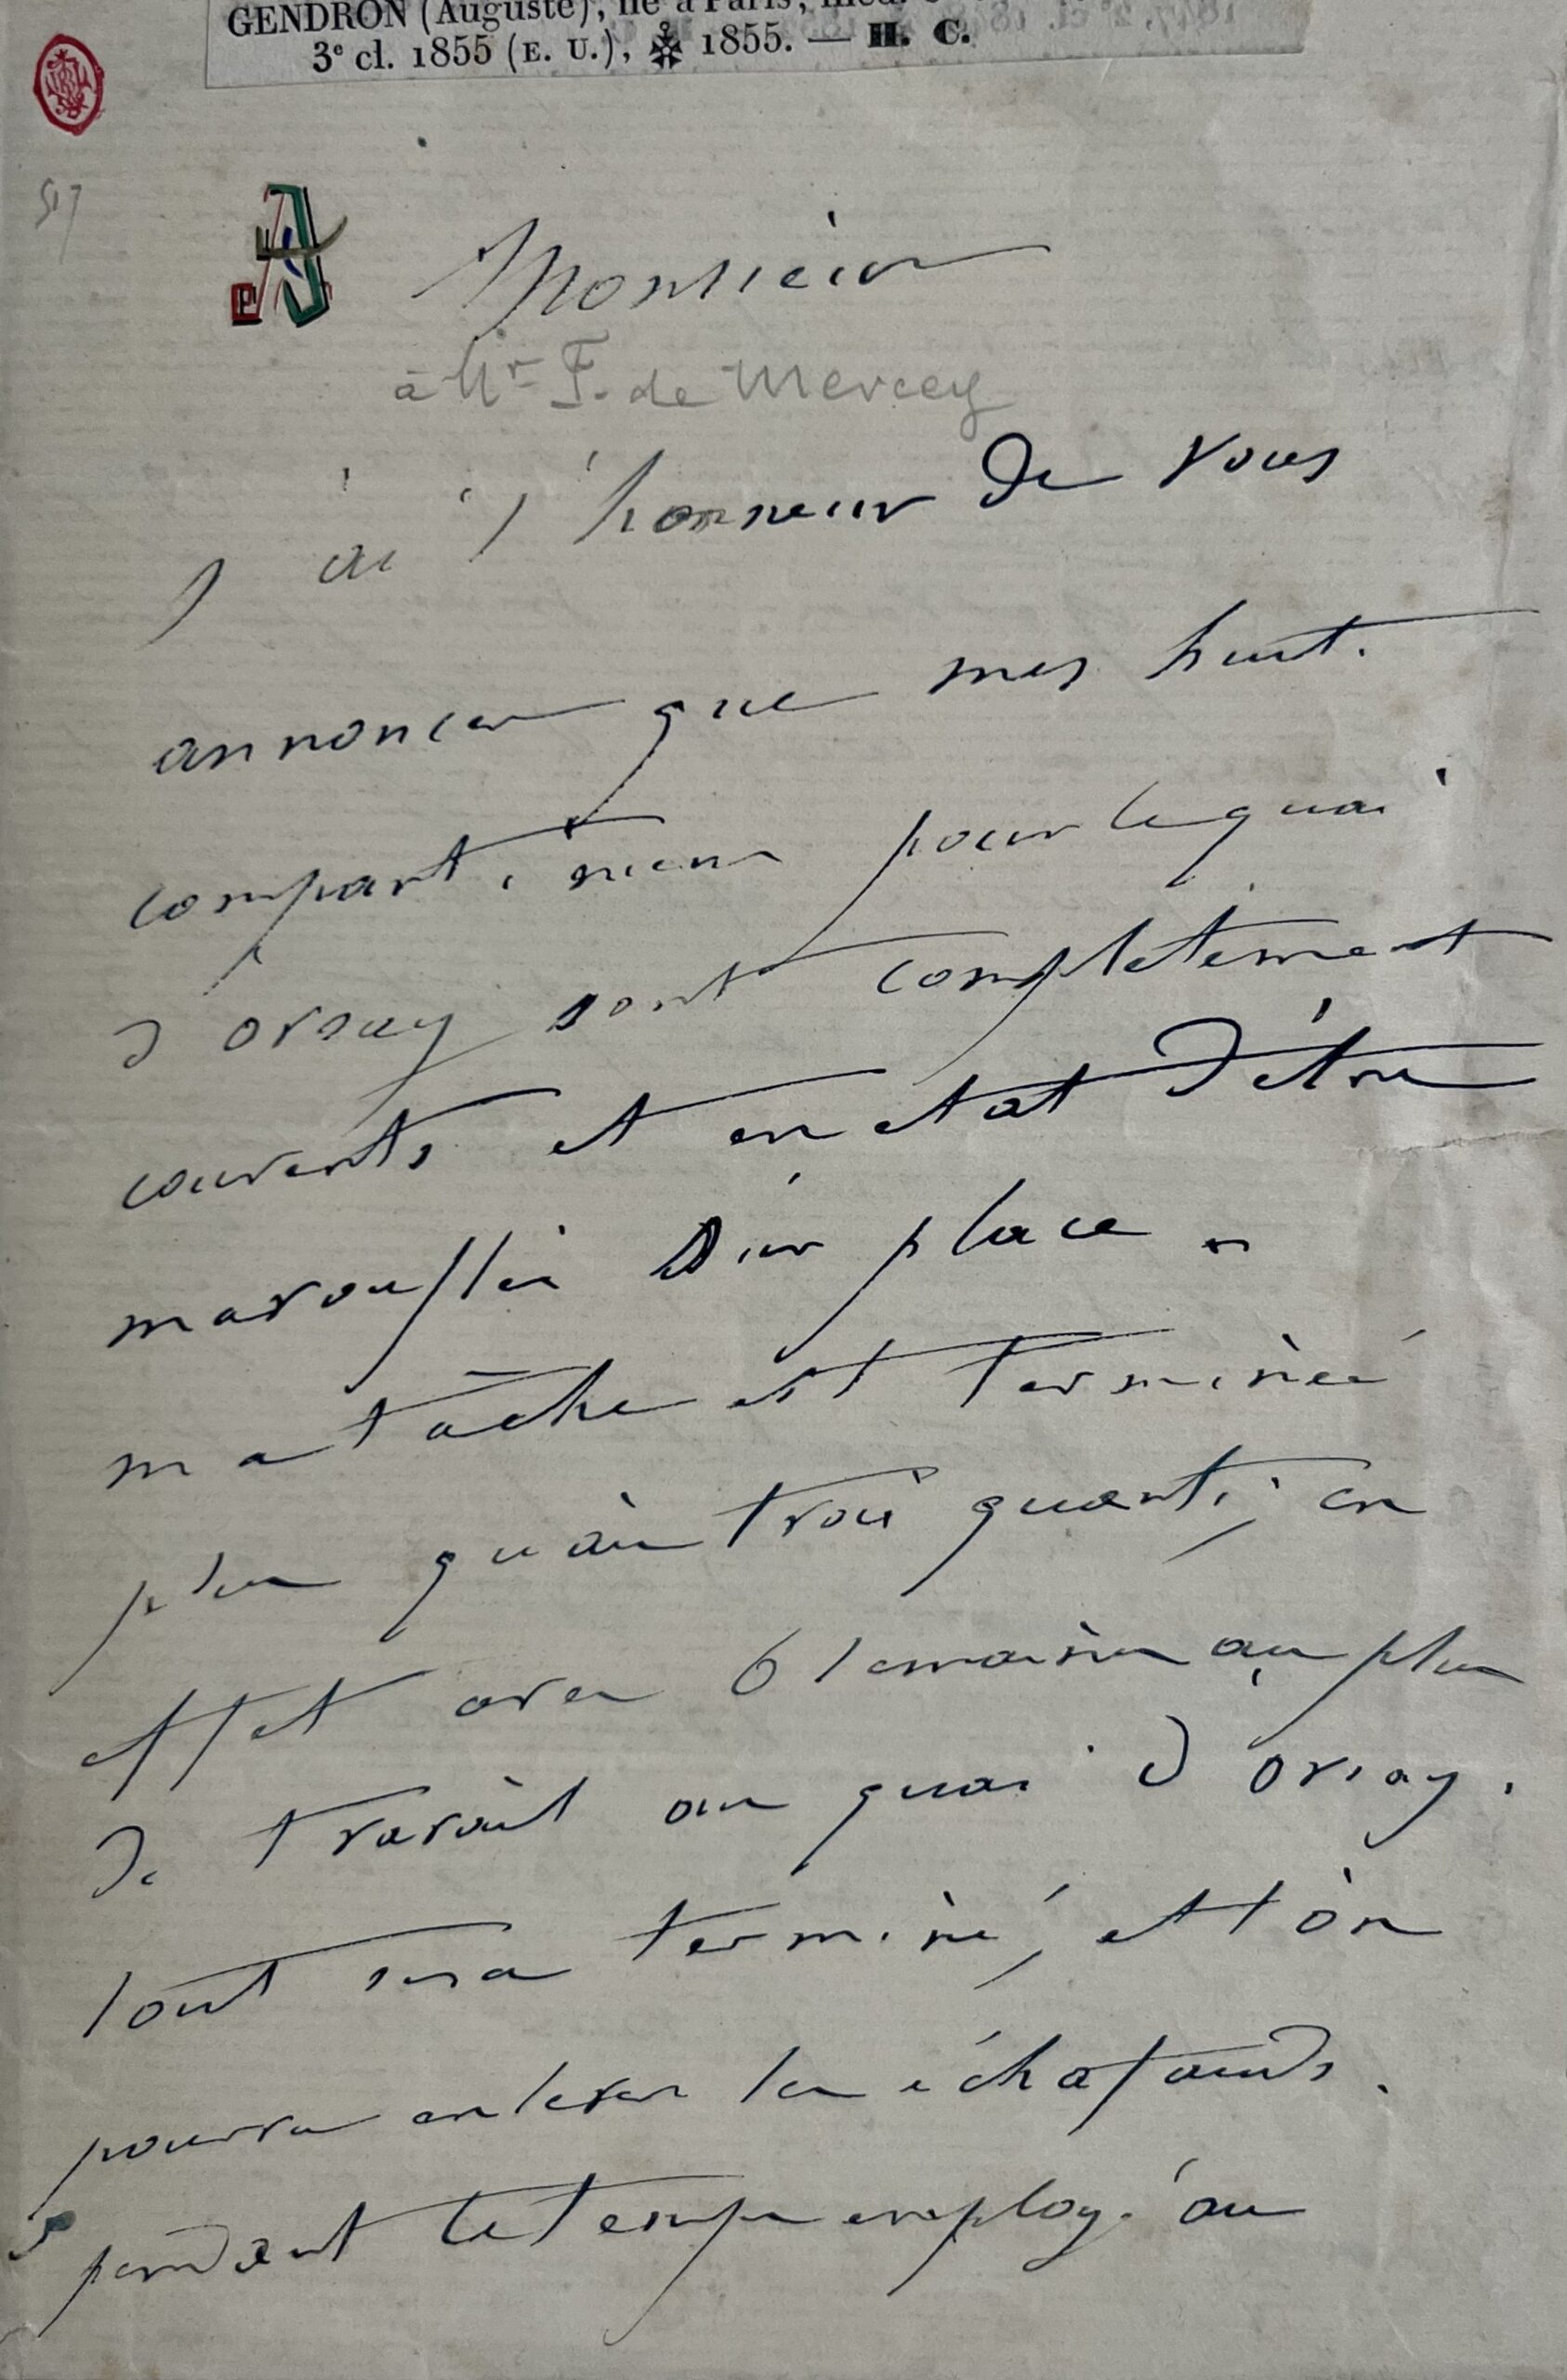 GENDRON (Auguste), né à Paris, méd.
3e cl. 1855 (E. U.), 1855. — H. C.
517
Monsieur
à Mr F. de Mercey
j ai l'honneur de vous
annoncer que mes huit
compartimens pour le quai
d orsay sont complètement
couverts et en état d'être
marouflés sur place
ma tâche est terminée
plus qu'aux trois quarts, en
effet avec 6 semaines au plus
de travail au quai d orsay.
tout sera terminé, et l'on
pourra enlever les échafauds.
pendant le temps employé au